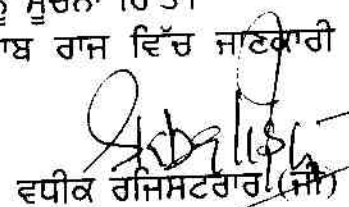 ਸੂਚਨਾ ਹਿੱਤ।
ਰਾਜ ਵਿੱਚ ਜਾਣਕਾਰੀ
ਵਧੀਕ ਰਜਿਸਟਰਾਰ (ਜੀ)